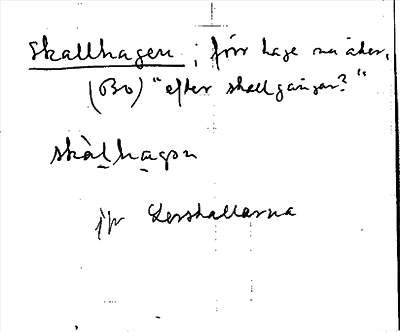 Skallhagen; förr hage nu åker.
(Bo) "efter skallgångar?"
skàlhagǝn
jfr Lerskallarna